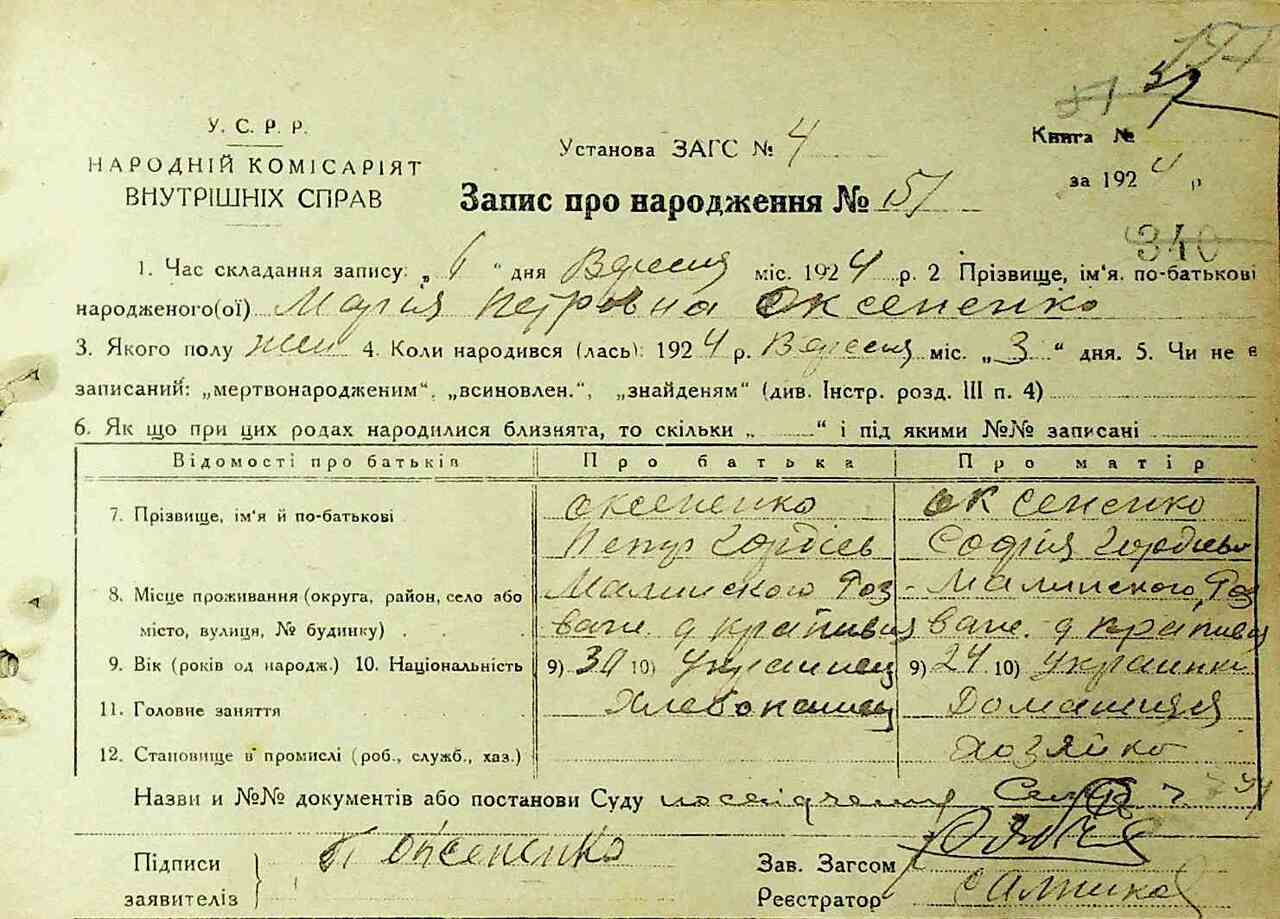 У. С. Р. Р.
НАРОДНІЙ КОМІСАРІЯТ
ВНУТРІШНІХ СПРАВ
Установа ЗАГС № 4
Книга №
за 1924 р
Запис про народження № 151
340
1. Час складання запису: „ 6 “ дня Вересня міс. 1924 р. 2 Прізвище, ім‘я. по-батькові
народженого(ої) Марія Петровна Оксененко
3. Якого полу жен 4. Коли народився (лась): 1924 р. Вересня міс. „ 3 “ дня. 5. Чи не є
записаний: „мертвонародженим“, „всиновлен.“, „знайденям“ (див. Інстр. розд. III п. 4)
6. Як що при цих родах народилися близнята, то скільки „ “ і під якими №№ записані
Відомості про батьків Про батька Про матір
7. Прізвище, ім'я й по-батькові Оксененко Оксененко
Петр Гордієв Софія Гордієвн
8. Місце проживання (округа, район, село або Малинского Роз Малинского, Роз
місто, вулиця, № будинку) важ. д крапивня важ. д крапивня
9. Вік (років од народж.) 10. Національність 9) 30 10) Украинец 9) 24 10) Украинка
11. Головне заняття Хлебопашец Домашняя
12. Становище в промислі (роб., служб., хаз.) хозяйка
Назви и №№ документів або постанови Суду посвідчення
Підписи
заявителів
П Оксененко
Зав. Загсом
Реєстратор